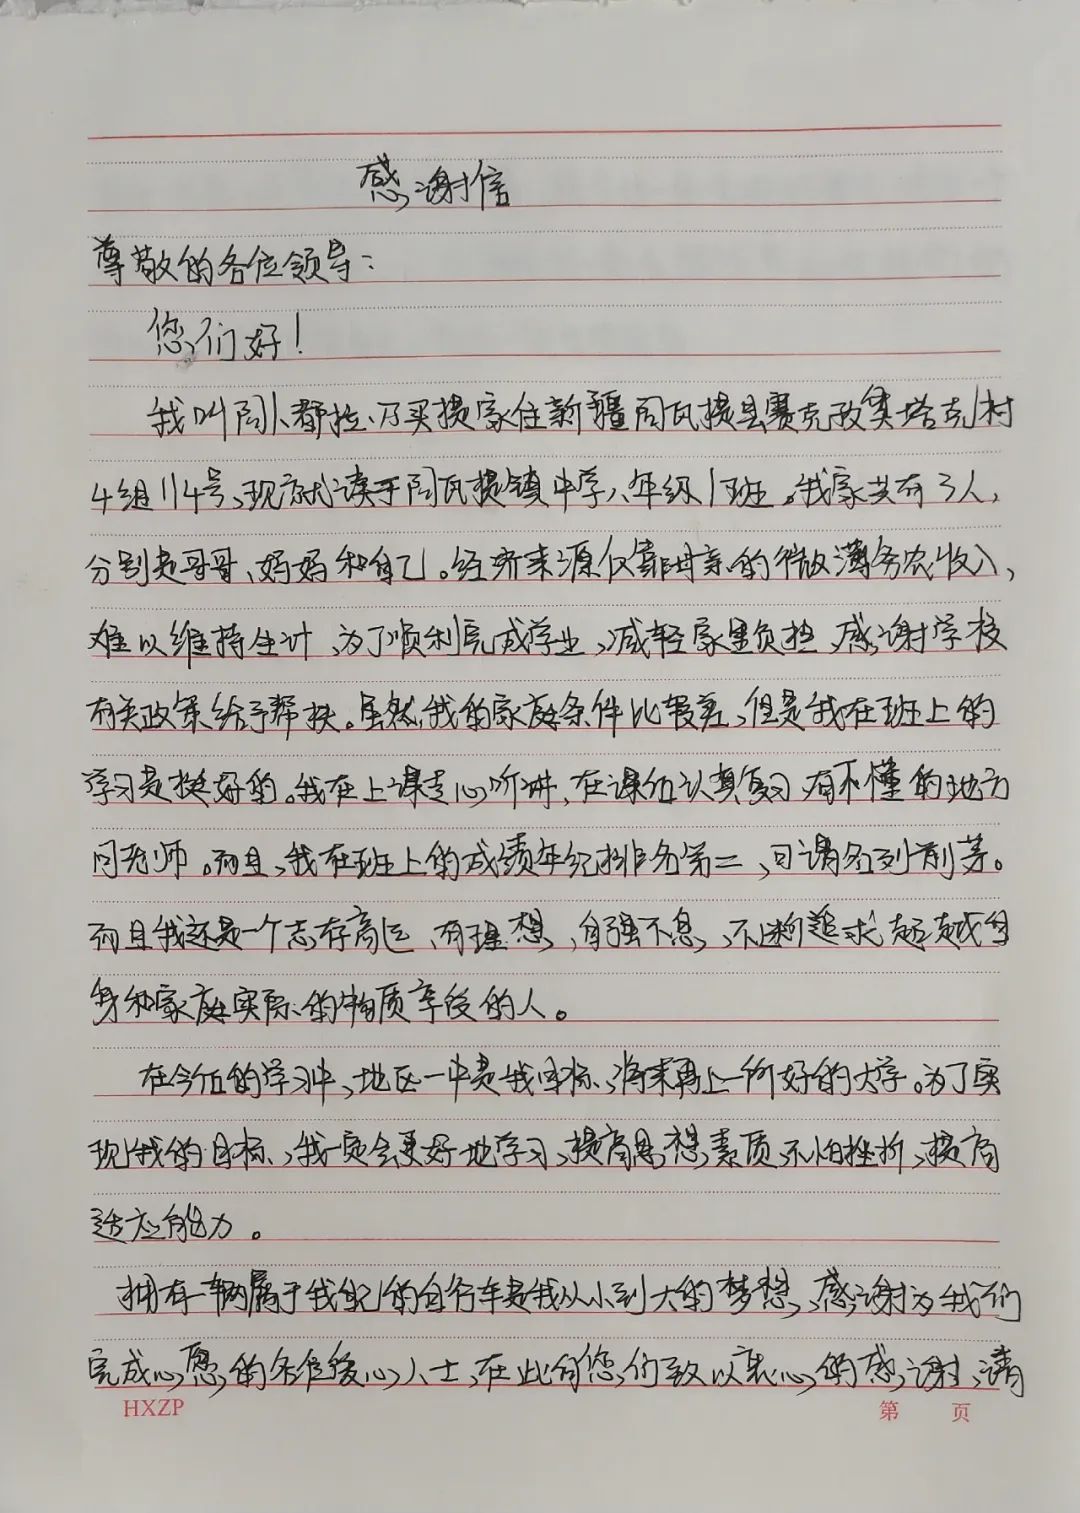 感谢信
尊敬的各位领导：
您们好！
我叫阿卜都拉·乃买提家住新疆阿瓦提县赛克孜奥塔克村
4组114号，现就读于阿瓦提镇中学八年级1班。我家共有3人，
分别是哥哥、妈妈和自己。经济来源仅靠母亲的微薄务农收入，
难以维持生计，为了顺利完成学业，减轻家里负担，感谢学校
有关政策给予帮扶。虽然我的家庭条件比较差，但是我在班上的
学习是挺好的。我在上课专心听讲，在课后认真复习，有不懂的地方
问老师。而且，我在班上的成绩年纪排名第二，可谓名列前茅。
而且我还是一个志存高远，有理想，自强不息，不断追求超越自
身和家庭实际的物质享受的人。
在今后的学习中，地区一中是我目标，将来再上一所好的大学。为了实
现我的目标，我一定会更好地学习，提高思想素质，不怕挫折，提高
适应能力。
拥有一辆属于我自己的自行车是我从小到大的梦想，感谢为我们
完成心愿的各位爱心人士，在此向您们致以衷心的感谢，请
HXZP
第 页